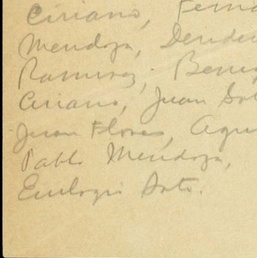 Ciriano, Ferna
Mendoza, Deride
Ramirez, Beni
Ciriano, Juan Sot
Juan Flores, Agu
Pablo Mendoza,
Eulogio Soto.